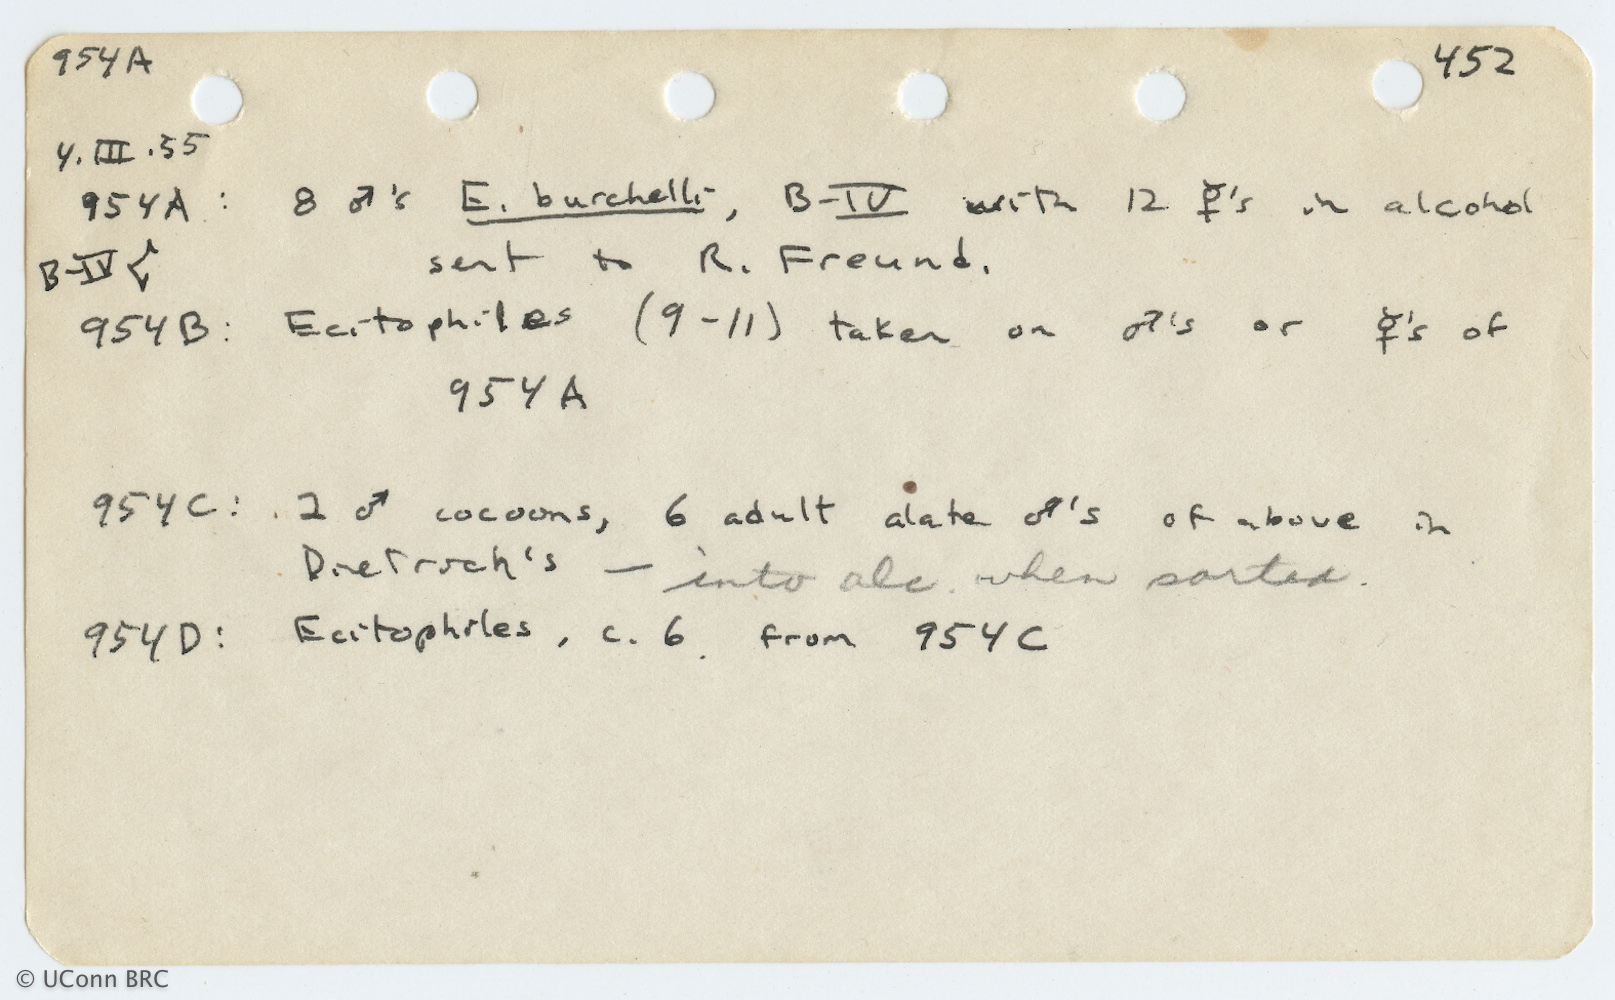 954A 452
4.III.55
954A: 8 ♂'s E. burchelli, B-IV with 12 ☿'s in alcohol
B-IV { sent to R. Freund.
954B: Ecitophiles (9-11) taken on ♂'s or ☿'s of
954A
954C: 2 ♂ cocoons, 6 adult alate ♂'s of above in
Dietrich's — into alc. when sorted.
954D: Ecitophiles, c. 6. from 954C
© UConn BRC